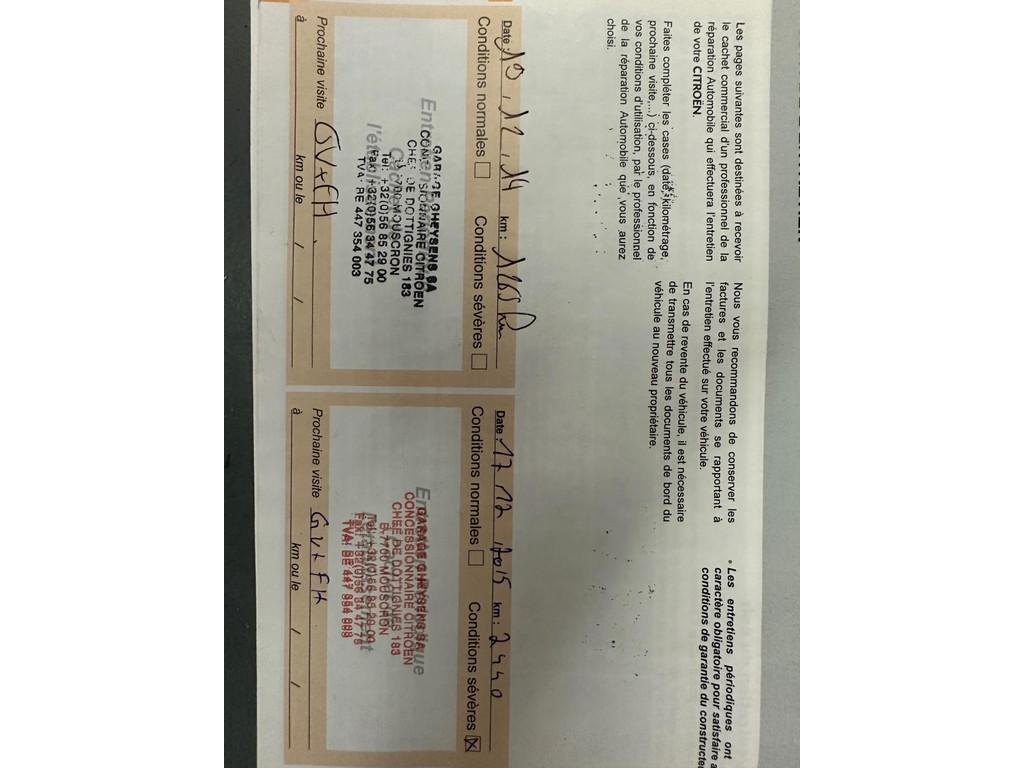 Les pages suivantes sont destinées à recevoir
le cachet commercial d'un professionnel de la
réparation Automobile qui effectuera l'entretien
de votre CITROËN.
Faites compléter les cases (date, kilométrage,
prochaine visite,...) ci-dessous, en fonction de
vos conditions d'utilisation, par le professionnel
de la réparation Automobile que vous aurez
choisi.
Nous vous recommandons de conserver les
factures et les documents se rapportant à
l'entretien effectué sur votre véhicule.
En cas de revente du véhicule, il est nécessaire
de transmettre tous les documents de bord du
véhicule au nouveau propriétaire.
• Les entretiens périodiques ont
caractère obligatoire pour satisfaire a
conditions de garantie du constructe
Date : 10.12.14 km :
Conditions normales Conditions sévères
GARAGE GHEYSENS SA
CONCESSIONNAIRE CITROEN
CHEE DE DOTTIGNIES 183
7700 MOUSCRON
Tél: +32(0)56 85 29 00
Fax: +32(0)56 34 47 75
TVA: BE 447 354 003
Prochaine visite GV+FH.
à km ou le / /
Date : 17 12 2015 km : 2440
Conditions normales Conditions sévères
GARAGE GHEYSENS SA
CONCESSIONNAIRE CITROEN
CHEE DE DOTTIGNIES 183
B-7700 MOUSCRON
Tél: +32(0)56 85 29 00
Fax: +32(0)56 34 47 75
TVA: BE 447 354 003
Prochaine visite GV+FH
à km ou le / /